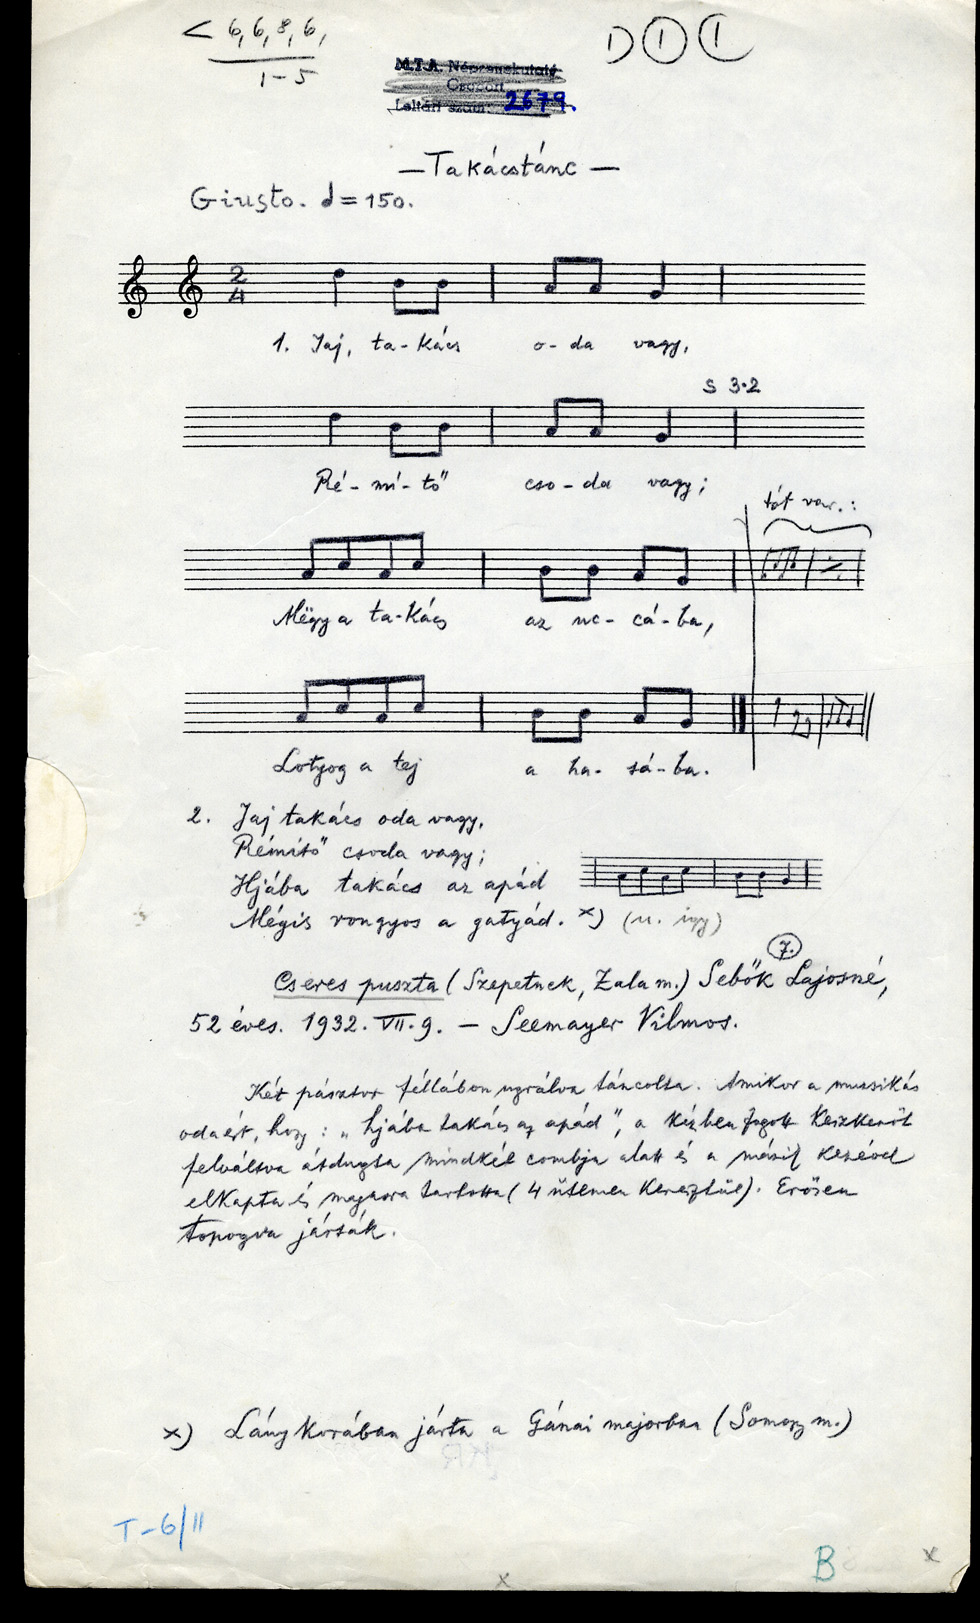 < 6, 6, 8, 6,
1-5
D 1 1
M.T.A. Népzenekutató
Csoport
Leltári szám: 2679.
— Takácstánc —
Giusto. d = 150.
2
4
1. Jaj, ta - kács o - da vagy,
S 3·2
Ré - mí - tő cso - da vagy;
tót var.:
Mëgy a ta - kács az uc - cá - ba,
Lotyog a tej a ha - sá - ba.
2. Jaj takács oda vagy,
Rémítő csoda vagy;
Hjába takács az apád
Mégis rongyos a gatyád. x) (u. így)
7.
Cseres puszta (Szepetnek, Zala m.) Sebők Lajosné,
52 éves. 1932. VII. 9. — Seemayer Vilmos.
Két pásztor féllábon ugrálva táncolta. Amikor a muzsikás
odaért, hogy: „hjába takács az apád", a kézben fogott keszkenőt
felváltva átdugta mindkét combja alatt és a másik kezével
elkapta és magasra tartotta (4 ütemen keresztül). Erősen
topogva járták.
x) Lánykorában járta a Gánai majorban (Somogy m.)
T-6/II
B
x
x